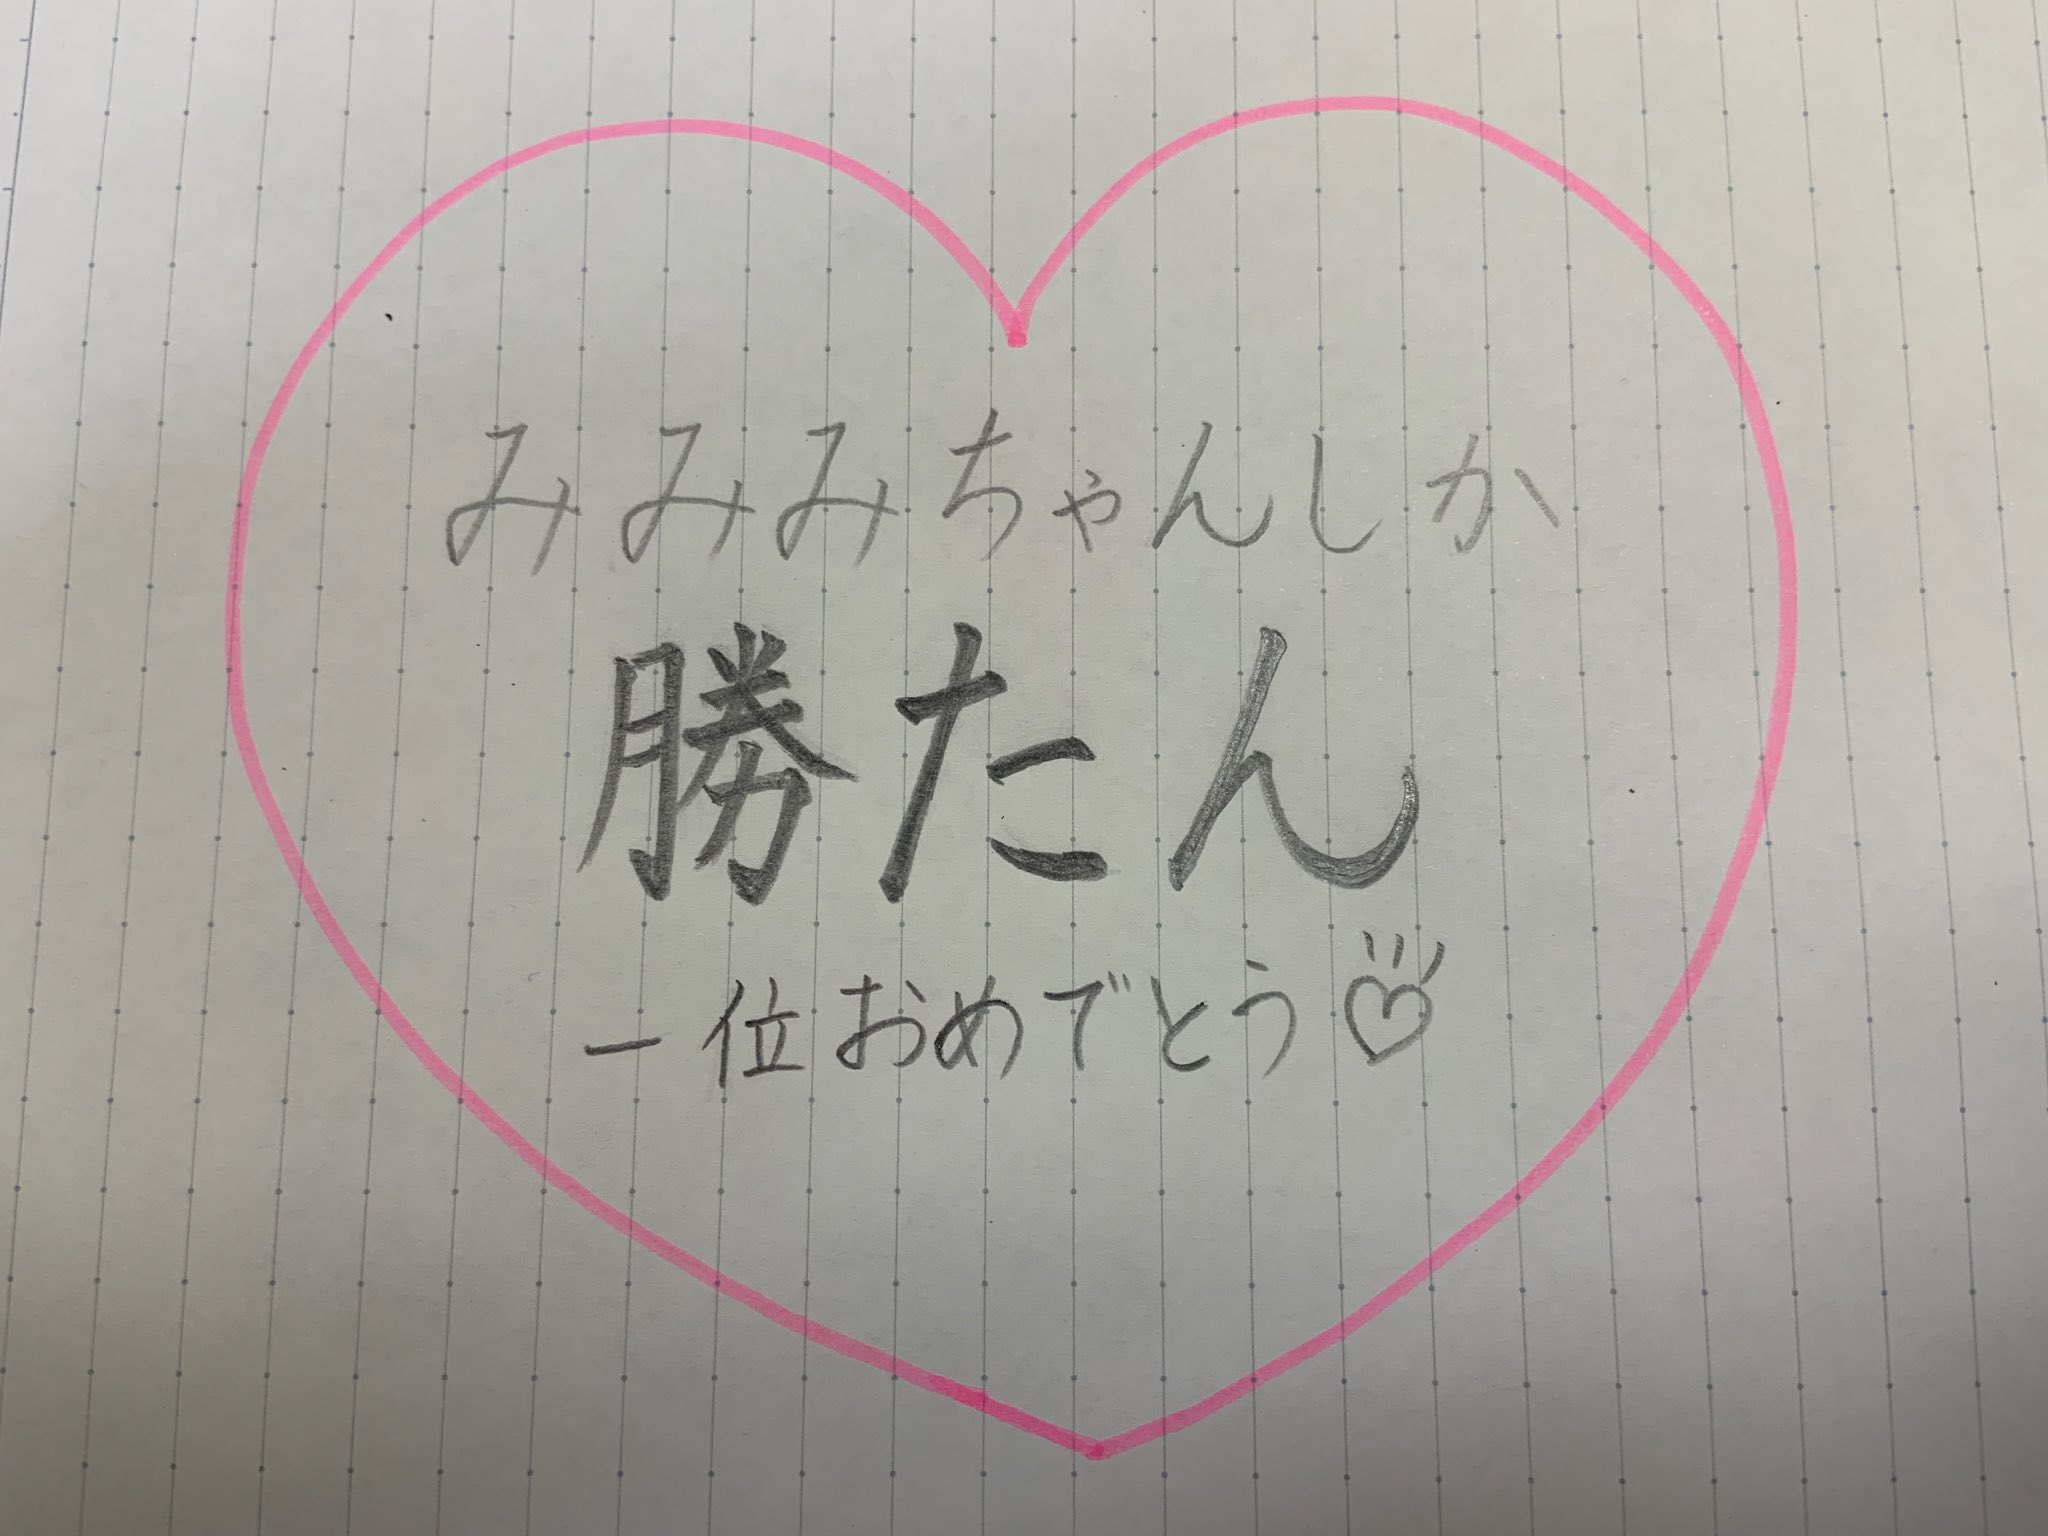 みみみちゃんしか
勝たん
一位おめでとう♡